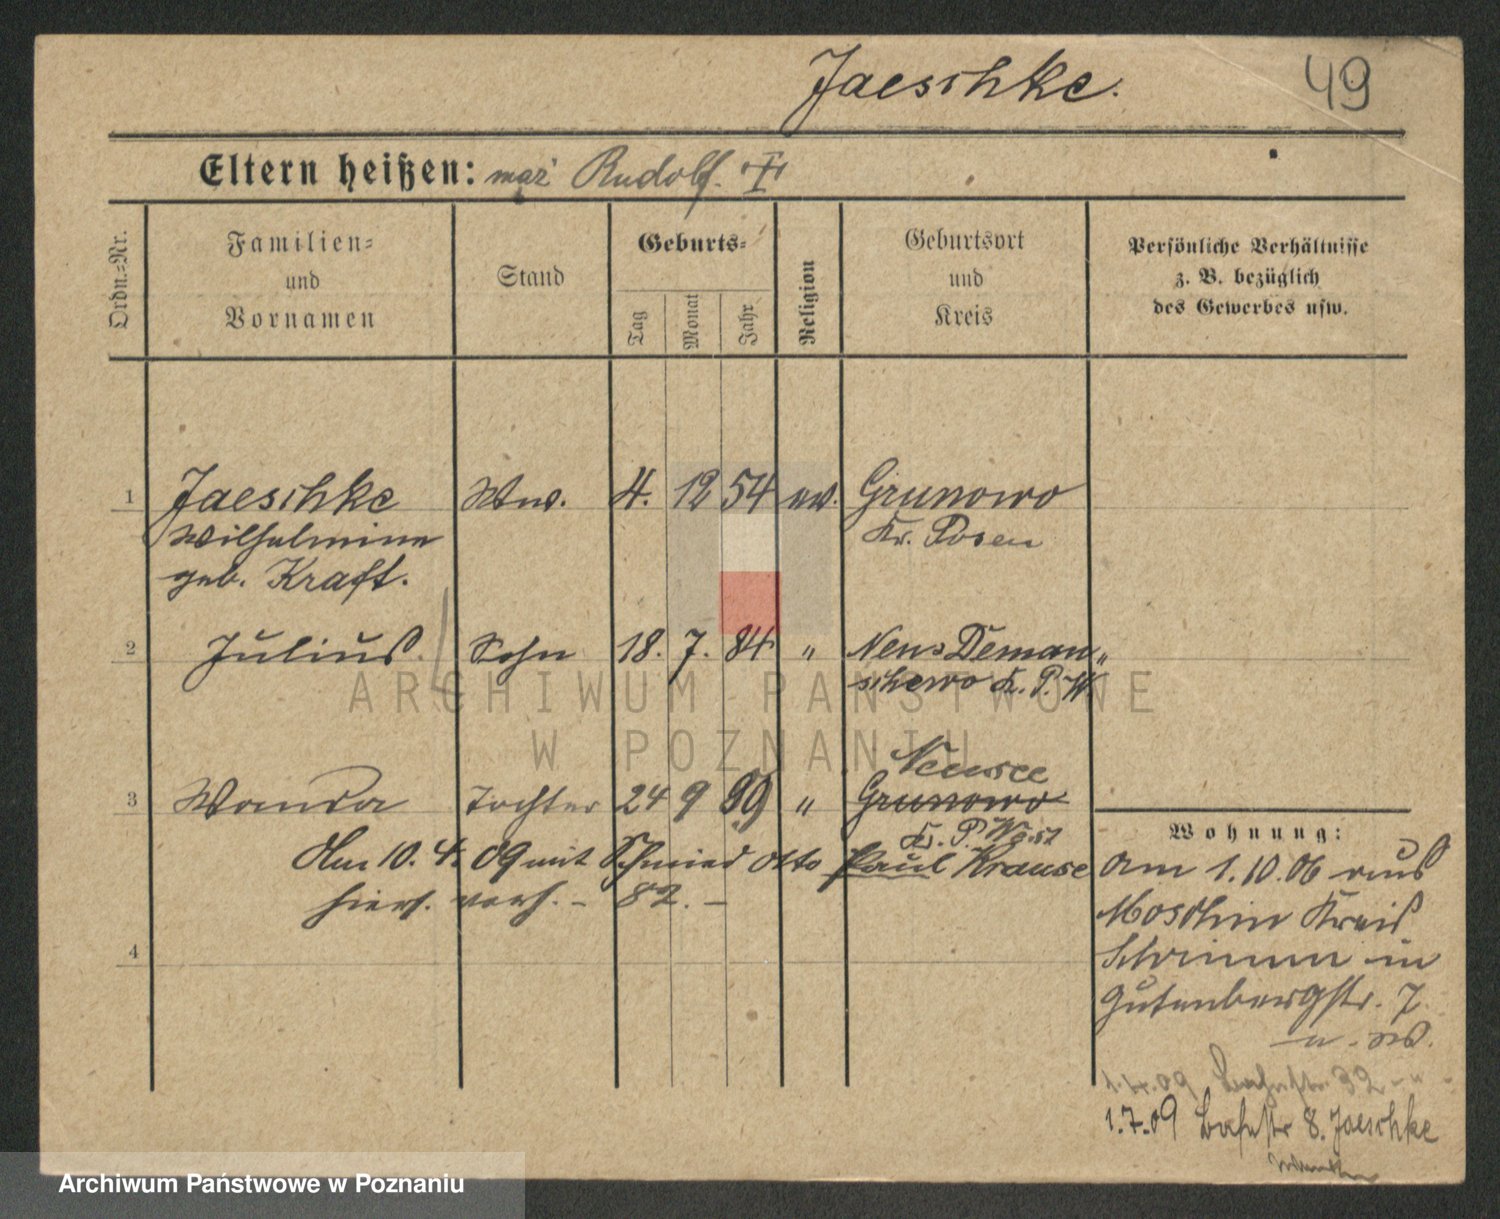 Jaeschke.
49
Eltern heißen: mąż Rudolf. †
Ordn.=Nr.
Familien=
und
Vornamen
Stand
Geburts=
Tag
Monat
Jahr
Religion
Geburtsort
und
Kreis
Persönliche Verhältnisse
z. B. bezüglich
des Gewerbes usw.
1 Jaeschke Wwe. 4. 12 54 ev. Grunowo
Wilhelmine Kr. Posen
geb. Kraft.
2 Julius Sohn 18. 7. 84 " Neu Deman„
schewo Kr. P. W
ARCHIWUM PAŃSTWOWE
W POZNANIU
Neusee
3 Wanda Tochter 24 9 89 " Grunowo
Kr. P. West
Am 10. 4. 09 mit Schmied Otto Paul Krause
hiers. verh. - 82. -
4
Wohnung:
Am 1.10.06 aus
Moschin Kreis
Schrimm in
Gutenbergstr. 7
1.4.09 Bahnstr. 32 - "
1.7.09 Bahnstr 8. Jaeschke
Archiwum Państwowe w Poznaniu